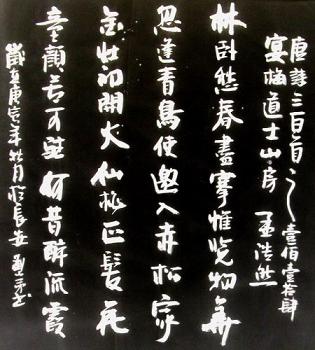 唐詩三百首之壹佰壹拾肆
宴梅道士山房 孟浩然
林卧愁春盡搴帷览物華
忽逢青鳥使邀入赤松家
金灶初開火仙桃正髮花
童顏若可駐何昔醉流霞
歲在庚寅年秋月於長安